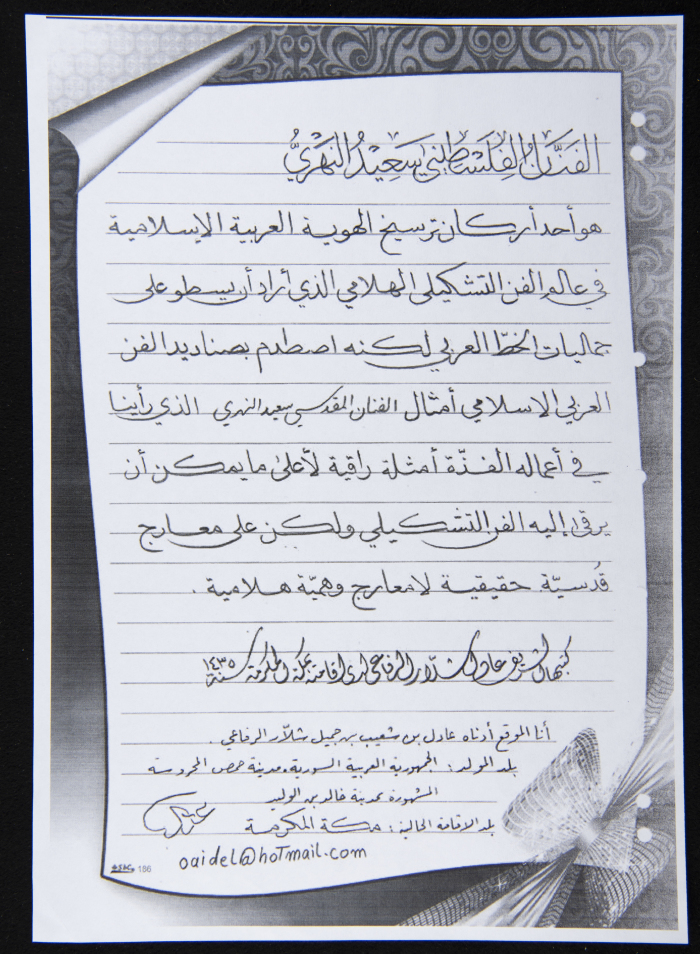 الفَنَّانُ الفِلَسْطِينيُّ سَعِيْدُ النَهْرِيُّ
هو أحد أركان ترسيخ الهوية العربية الإسلامية
في عالم الفن التشكيلي الهلامي الذي أراد أن يسطو على
جماليات الخطّ العربي لكنه اصطدم بصناديد الفن
العربي الاسلامي أمثال الفنان المقدسي سعيد النهري الذي رأينا
في أعماله الفذّة أمثلة راقية لأعلى ما يمكن أن
يرقى إليه الفن التشكيلي ولكن على معارج
قُدسيّة حقيقية لا معارج وهميّة هلامية .
كتبها الشريف عادل شلّار الرفاعي لدى اقامته بمكة المكرمة سنة ١٤٣٥
أنا الموقع أدناه عادل بن شعيب بن جميل شلّار الرفاعي .
بلد المولد : الجمهورية العربية السورية ، مدينة حمص المحروسة
المشهورة بمدينة خالد بن الوليد
بلد الاقامة الحالية : مكة المكرمة
oaidel@hotmail.com
186